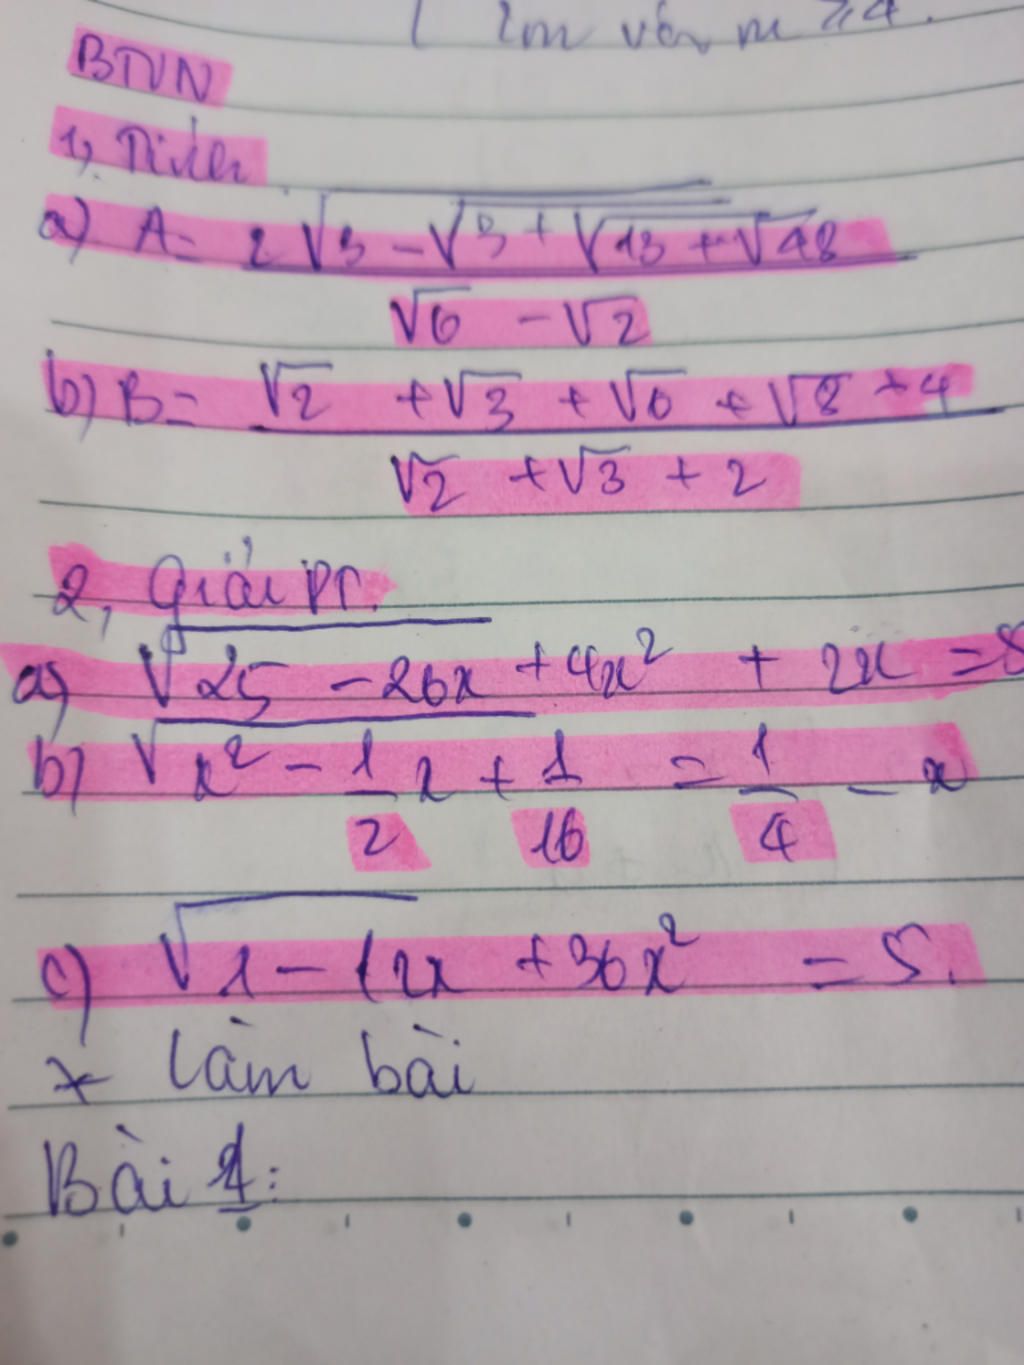 BTVN
1, Tính
a) A = 2√3 - √3 + √13 + √48
√6 - √2
b) B = √2 + √3 + √6 + √8 + 4
√2 + √3 + 2
2, Giải PT.
a) √25 - 20x + 4x² + 2x = 5
b) √x² - 1/2 x + 1/16 = 1/4 - x
c) √1 - 12x + 36x² = 5.
* Làm bài
Bài 1: